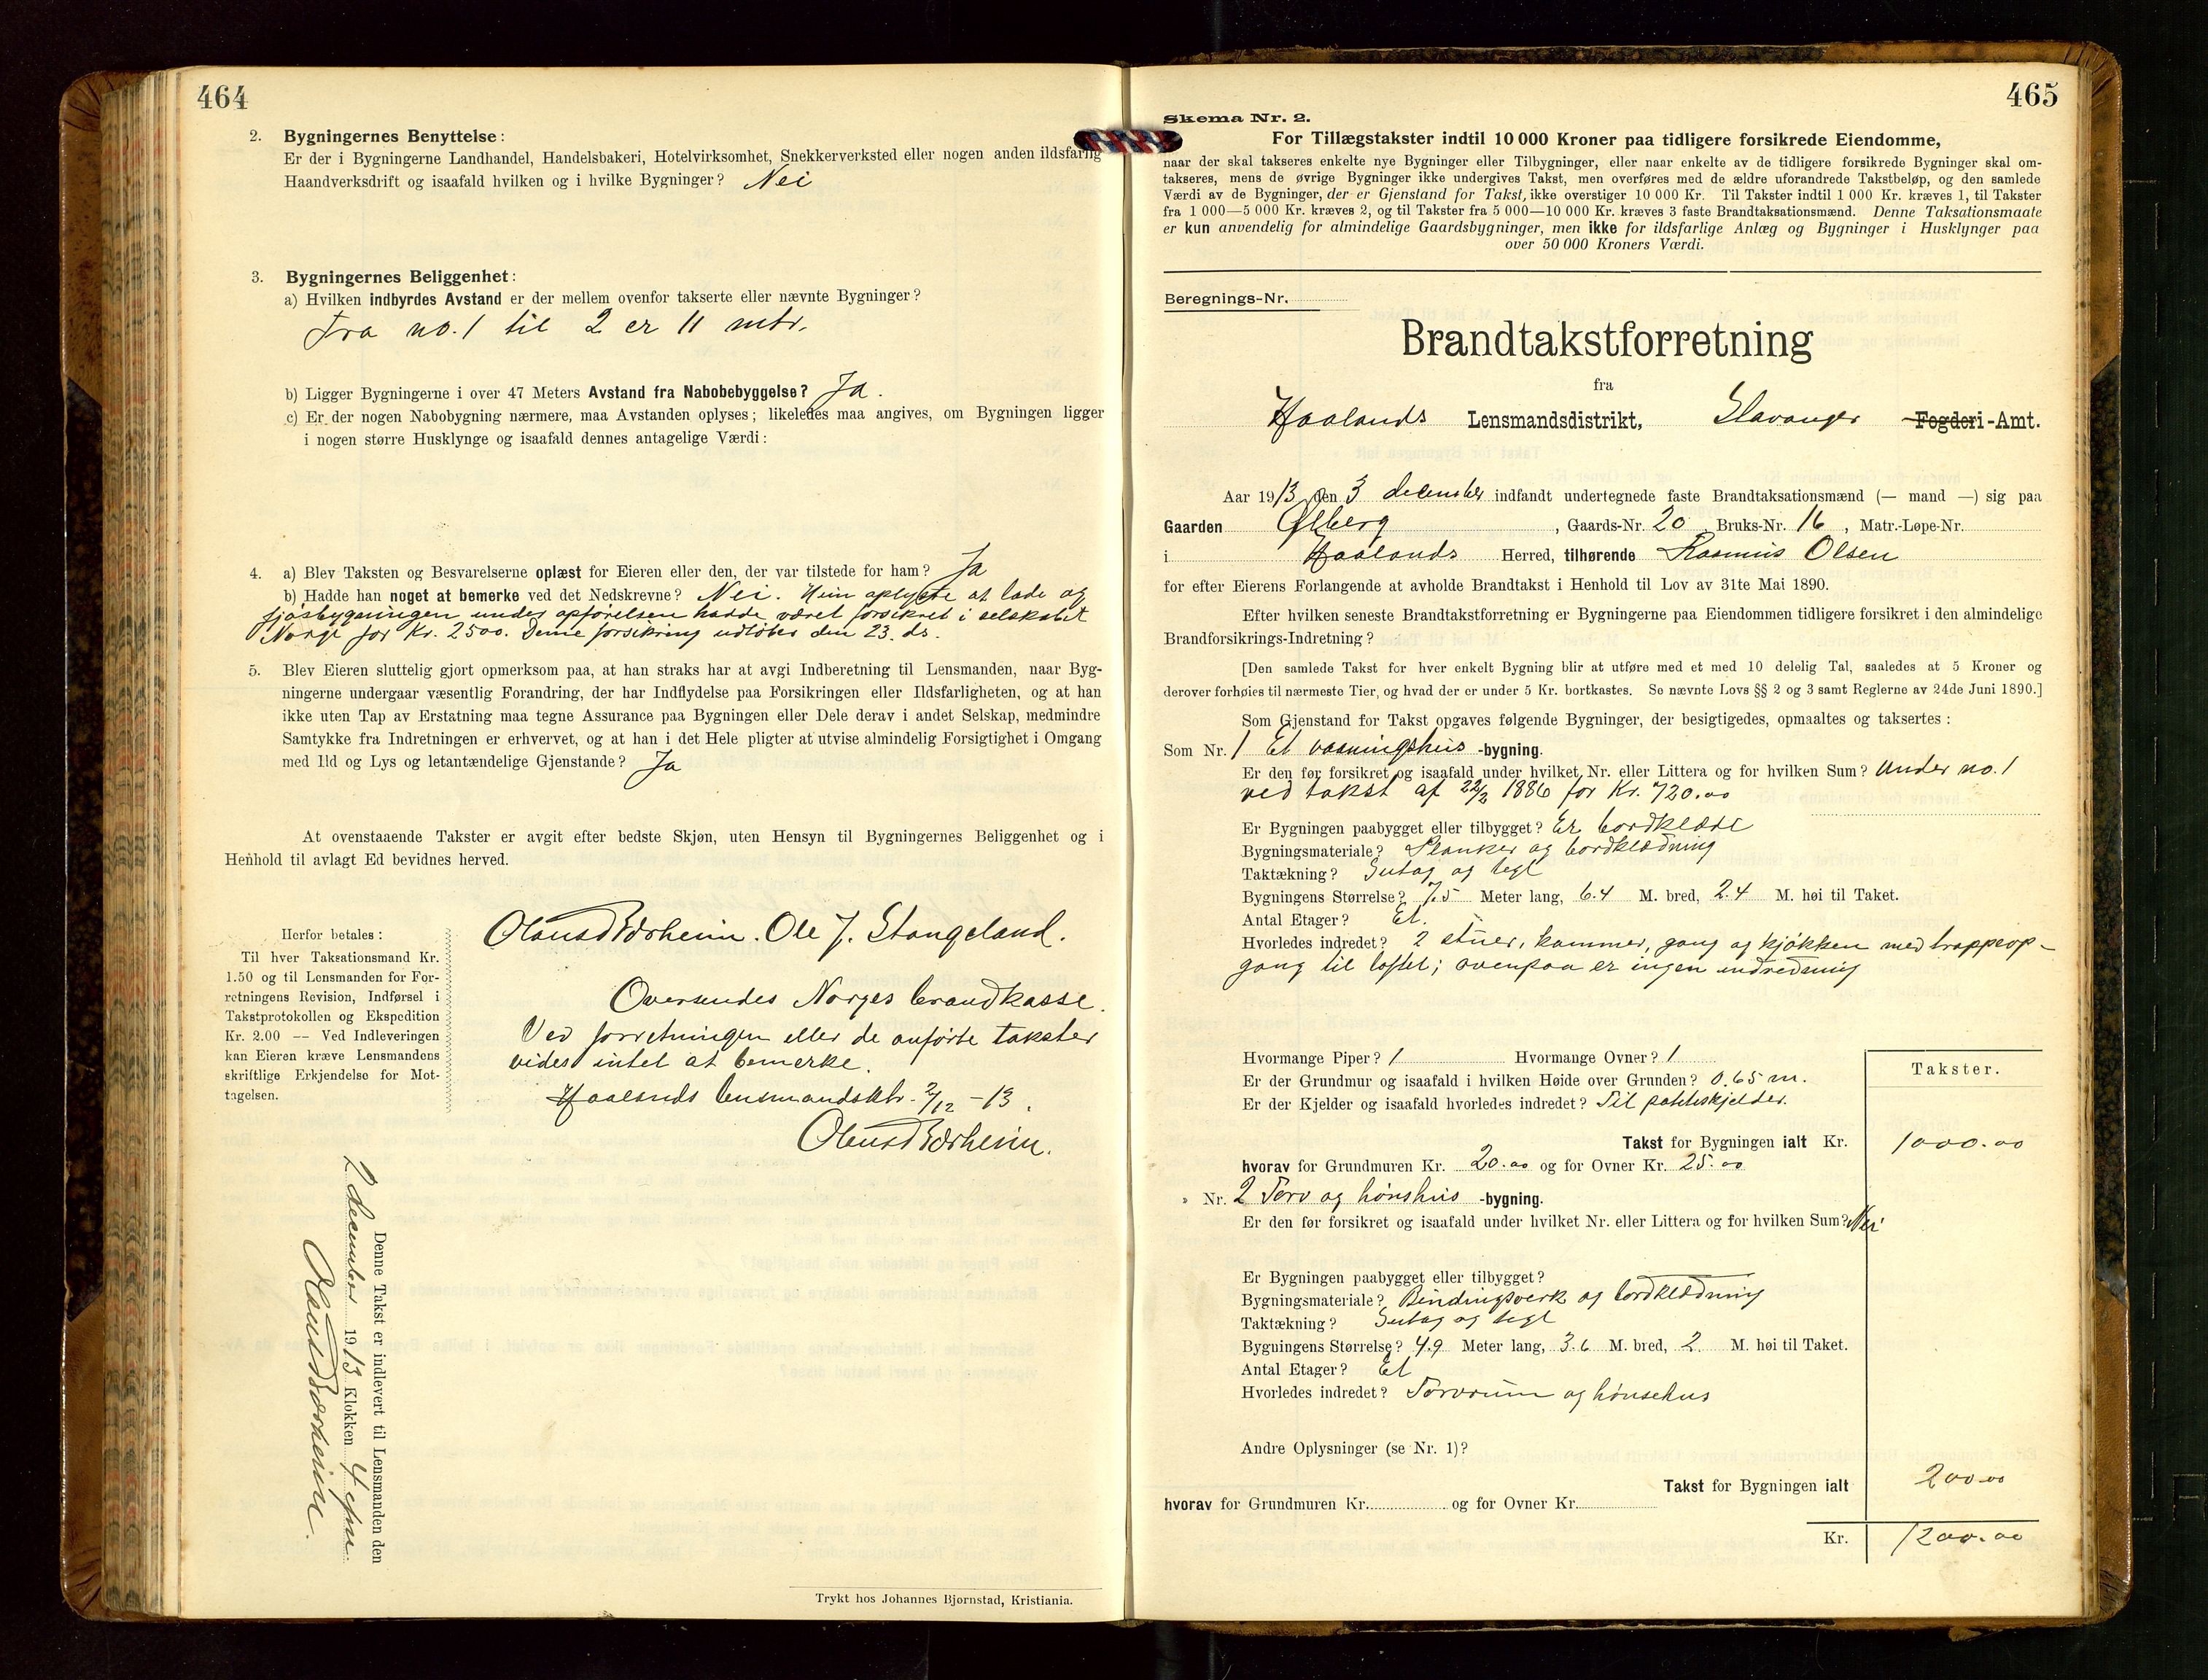 464
2. Bygningernes Benyttelse:
Er der i Bygningerne Landhandel, Handelsbakeri, Hotelvirksomhet, Snekkerverksted eller nogen anden ildsfarlig
Haandverksdrift og isaafald hvilken og i hvilke Bygninger? Nei
3. Bygningernes Beliggenhet:
a) Hvilken indbyrdes Avstand er der mellem ovenfor takserte eller nævnte Bygninger?
Fra no. 1 til 2 er 11 mtr.
b) Ligger Bygningerne i over 47 Meters Avstand fra Nabobebyggelse? Ja.
c) Er der nogen Nabobygning nærmere, maa Avstanden oplyses; likeledes maa angives, om Bygningen ligger
i nogen større Husklynge og isaafald dennes antagelige Værdi:
4. a) Blev Taksten og Besvarelserne oplæst for Eieren eller den, der var tilstede for ham? Ja
b) Hadde han noget at bemerke ved det Nedskrevne? Nei. Hun oplyste at lade og
fjøsbygningen under opførelsen hadde været forsikret i selskabet
Norge for Kr. 2500. Denne forsikring utløber den 23. ds.
5. Blev Eieren sluttelig gjort opmerksom paa, at han straks har at avgi Indberetning til Lensmanden, naar Byg-
ningerne undergaar væsentlig Forandring, der har Indflydelse paa Forsikringen eller Ildsfarligheten, og at han
ikke uten Tap av Erstatning maa tegne Assurance paa Bygningen eller Dele derav i andet Selskap, medmindre
Samtykke fra Indretningen er erhvervet, og at han i det Hele pligter at utvise almindelig Forsigtighet i Omgang
med Ild og Lys og letantændelige Gjenstande? Ja
At ovenstaaende Takster er avgit efter bedste Skjøn, uten Hensyn til Bygningernes Beliggenhet og i
Henhold til avlagt Ed bevidnes herved.
Herfor betales:
Til hver Taksationsmand Kr.
1.50 og til Lensmanden for For-
retningens Revision, Indførsel i
Takstprotokollen og Ekspedition
Kr. 2.00 — Ved Indleveringen
kan Eieren kræve Lensmandens
skriftlige Erkjendelse for Mot-
tagelsen.
Olaus Børheim. Ole J. Stangeland.
Oversendes Norges brandkasse.
Ved forretningen eller de anførte takster
vides intet at bemerke.
Haalands lensmandsktr. 2/12 – 13.
Olaus Børheim.
Denne Takst er indlevert til Lensmanden den
2 december 1913 Klokken 4 efm.
Olaus Børheim.
Trykt hos Johannes Bjørnstad, Kristiania.
465
Skema Nr. 2.
For Tillægstakster indtil 10 000 Kroner paa tidligere forsikrede Eiendomme,
naar der skal takseres enkelte nye Bygninger eller Tilbygninger, eller naar enkelte av de tidligere forsikrede Bygninger skal om-
takseres, mens de øvrige Bygninger ikke undergives Takst, men overføres med de ældre uforandrede Takstbeløp, og den samlede
Værdi av de Bygninger, der er Gjenstand for Takst, ikke overstiger 10 000 Kr. Til Takster indtil 1 000 Kr. kræves 1, til Takster
fra 1 000—5 000 Kr. kræves 2, og til Takster fra 5 000—10 000 Kr. kræves 3 faste Brandtaksationsmænd. Denne Taksationsmaate
er kun anvendelig for almindelige Gaardsbygninger, men ikke for ildsfarlige Anlæg og Bygninger i Husklynger paa
over 50 000 Kroners Værdi.
Beregnings-Nr.
Brandtakstforretning
fra
Haalands Lensmandsdistrikt, Stavanger Fogderi-Amt.
Aar 1913 den 3 december indfandt undertegnede faste Brandtaksationsmænd (— mand —) sig paa
Gaarden Ølberg, Gaards-Nr. 20, Bruks-Nr. 16, Matr.-Løpe-Nr.
i Haalands Herred, tilhørende Rasmus Olsen
for efter Eierens Forlangende at avholde Brandtakst i Henhold til Lov av 31te Mai 1890.
Efter hvilken seneste Brandtakstforretning er Bygningerne paa Eiendommen tidligere forsikret i den almindelige
Brandforsikrings-Indretning?
[Den samlede Takst for hver enkelt Bygning blir at utføre med et med 10 delelig Tal, saaledes at 5 Kroner og
derover forhøies til nærmeste Tier, og hvad der er under 5 Kr. bortkastes. Se nævnte Lovs §§ 2 og 3 samt Reglerne av 24de Juni 1890.]
Som Gjenstand for Takst opgaves følgende Bygninger, der besigtigedes, opmaaltes og taksertes:
Som Nr. 1 Et vaaningshus -bygning.
Er den før forsikret og isaafald under hvilket Nr. eller Littera og for hvilken Sum? Under no. 1
ved takst af 22/2 1886 for Kr. 720.00
Er Bygningen paabygget eller tilbygget? Er bordklædt
Bygningsmateriale? Planker og bordklædning
Taktækning? Sutag og tegl
Bygningens Størrelse? 7.5 Meter lang, 6.4 M. bred, 2.4 M. høi til Taket.
Antal Etager? Et.
Hvorledes indredet? 2 stuer, kammer, gang og kjøkken med trappeop-
gang til loftet; ovenpaa er ingen indredning
Hvormange Piper? 1 Hvormange Ovner? 1
Er der Grundmur og isaafald i hvilken Høide over Grunden? 0.65 m.
Er der Kjelder og isaafald hvorledes indredet? Til potetkjelder.
Takster.
Takst for Bygningen ialt Kr. 1000.00
hvorav for Grundmuren Kr. 20.00 og for Ovner Kr. 25.00
" Nr. 2 Torv og hønshus -bygning.
Er den før forsikret og isaafald under hvilket Nr. eller Littera og for hvilken Sum? Nei
Er Bygningen paabygget eller tilbygget?
Bygningsmateriale? Bindingsverk og bordklædning
Taktækning? Sutag og tegl
Bygningens Størrelse? 4.9 Meter lang, 3.6 M. bred, 2 M. høi til Taket.
Antal Etager? Et
Hvorledes indredet? Torvrum og hønsehus
Andre Oplysninger (se Nr. 1)?
Takst for Bygningen ialt 200.00
hvorav for Grundmuren Kr. og for Ovner Kr.
Kr. 1200.00